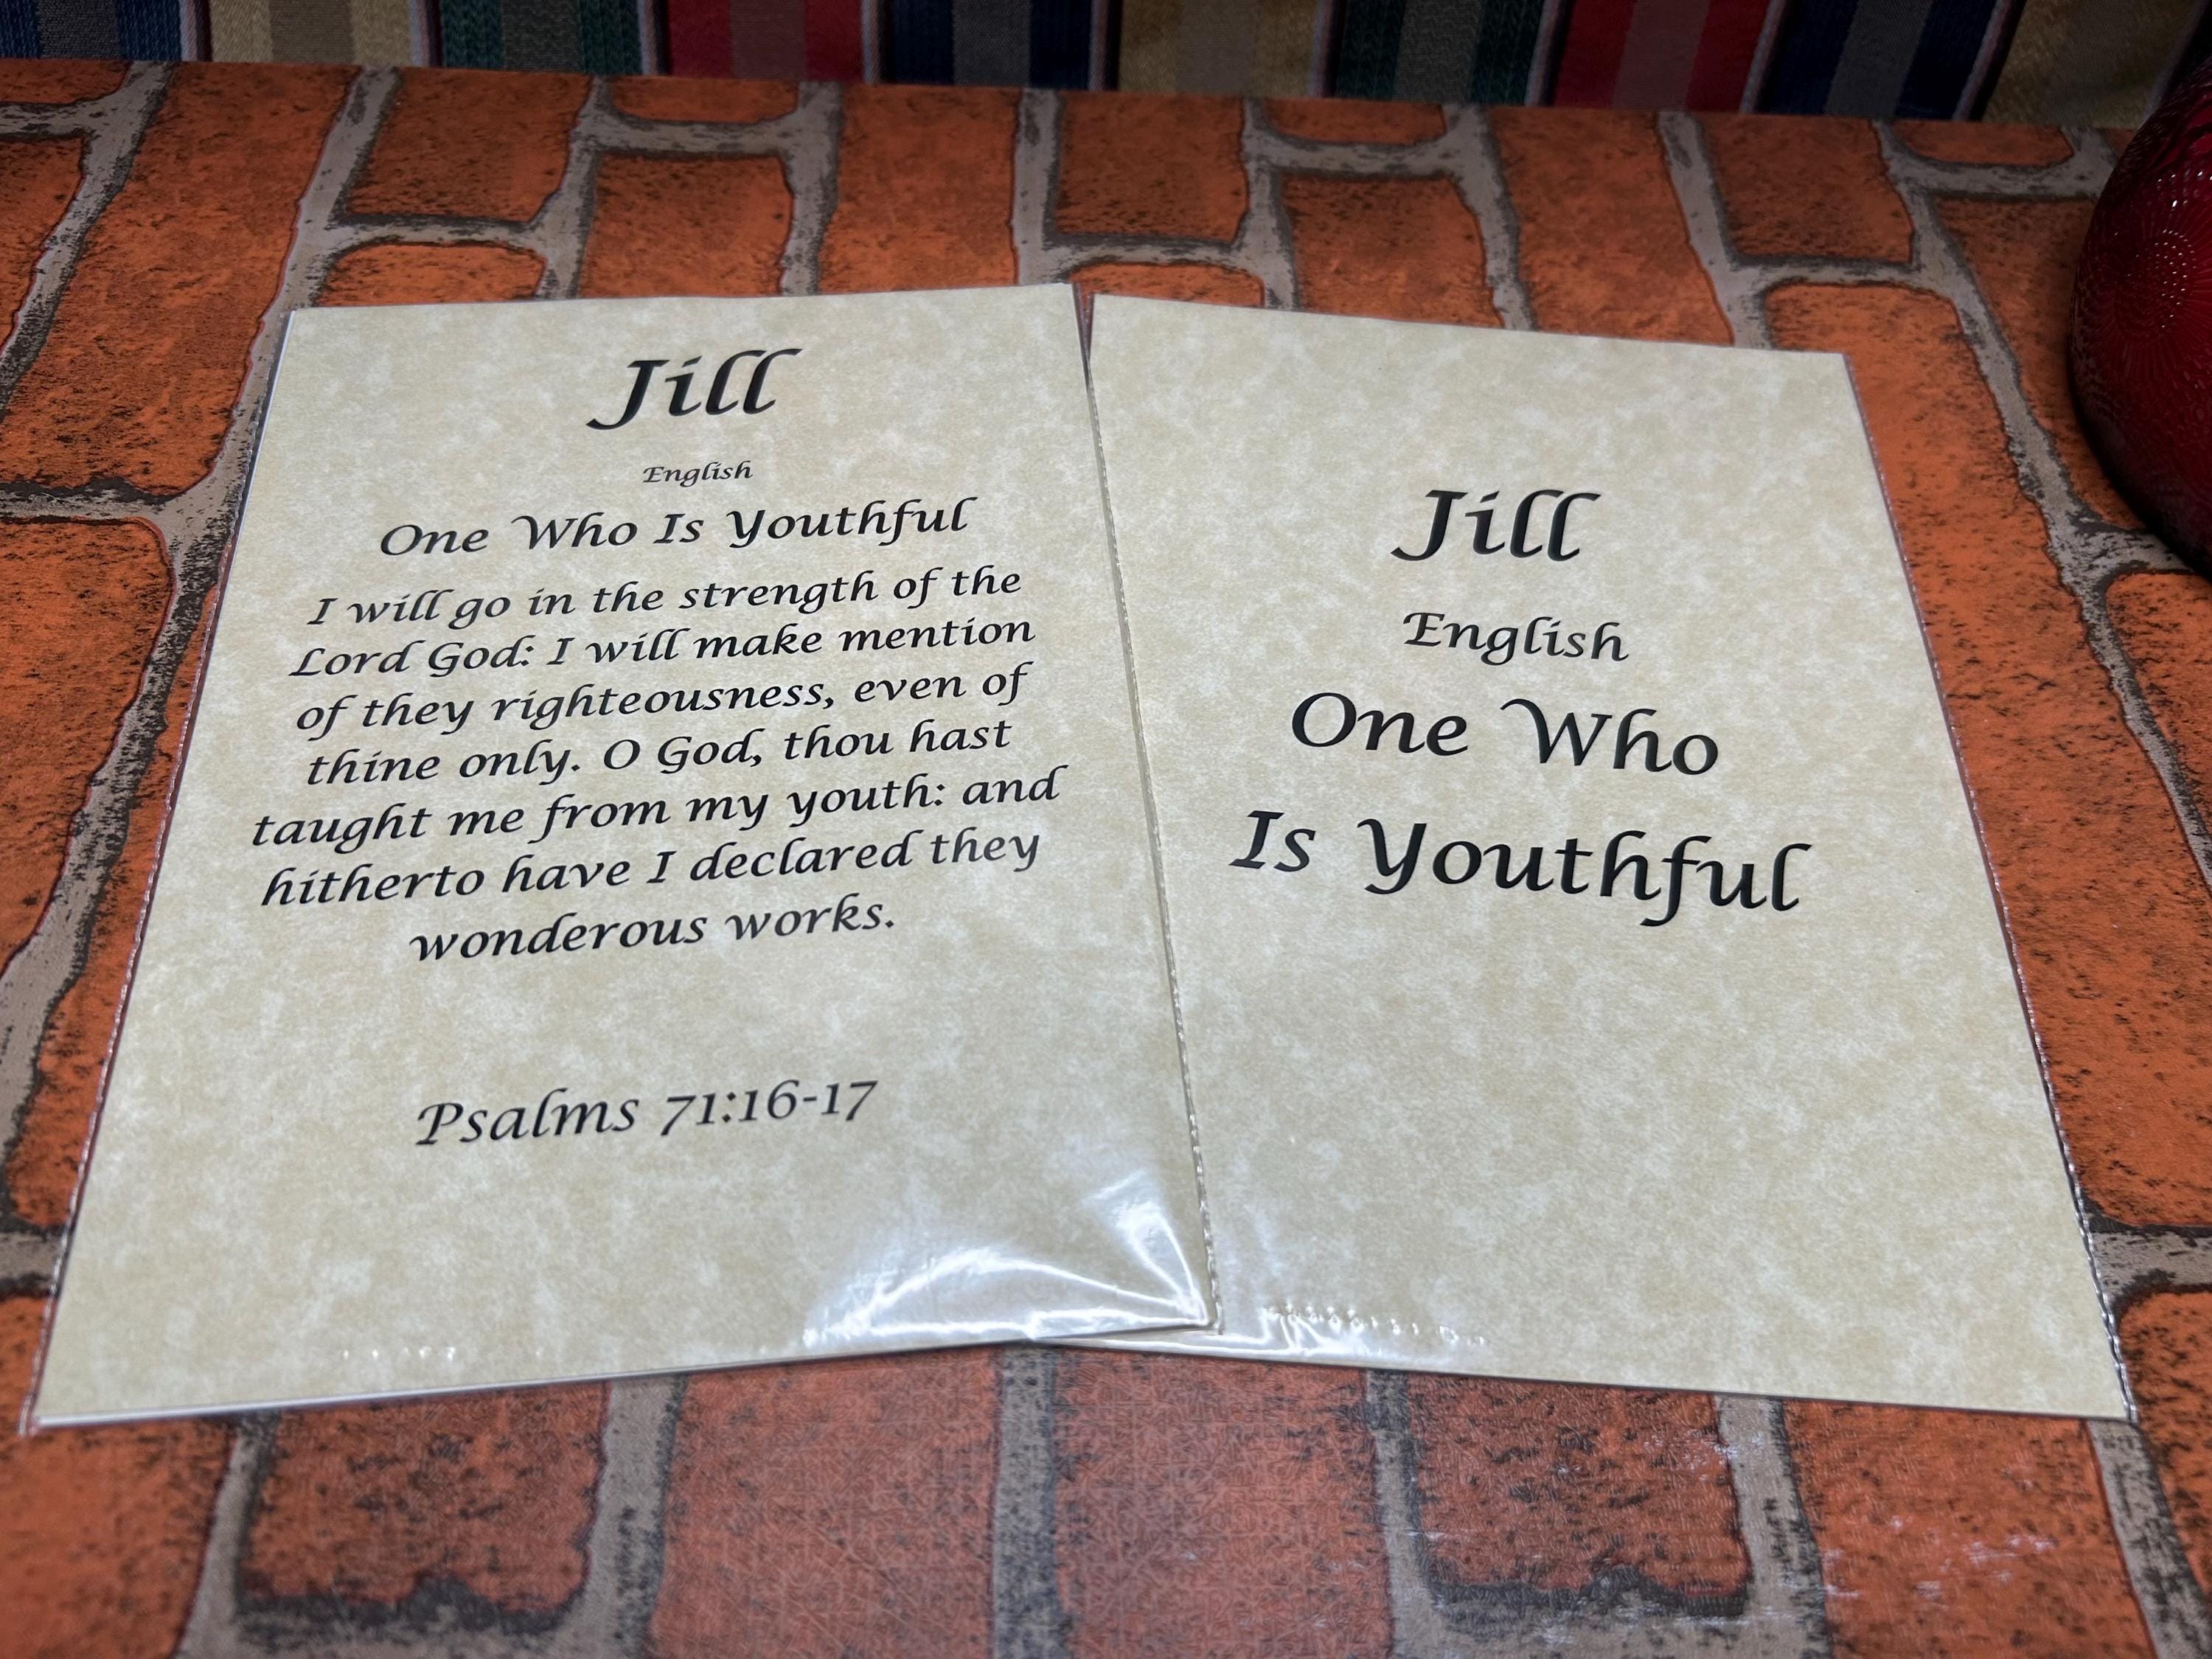 Jill
English
One Who Is Youthful
I will go in the strength of the
Lord God: I will make mention
of they righteousness, even of
thine only. O God, thou hast
taught me from my youth: and
hitherto have I declared they
wonderous works.
Psalms 71:16-17
Jill
English
One Who
Is Youthful